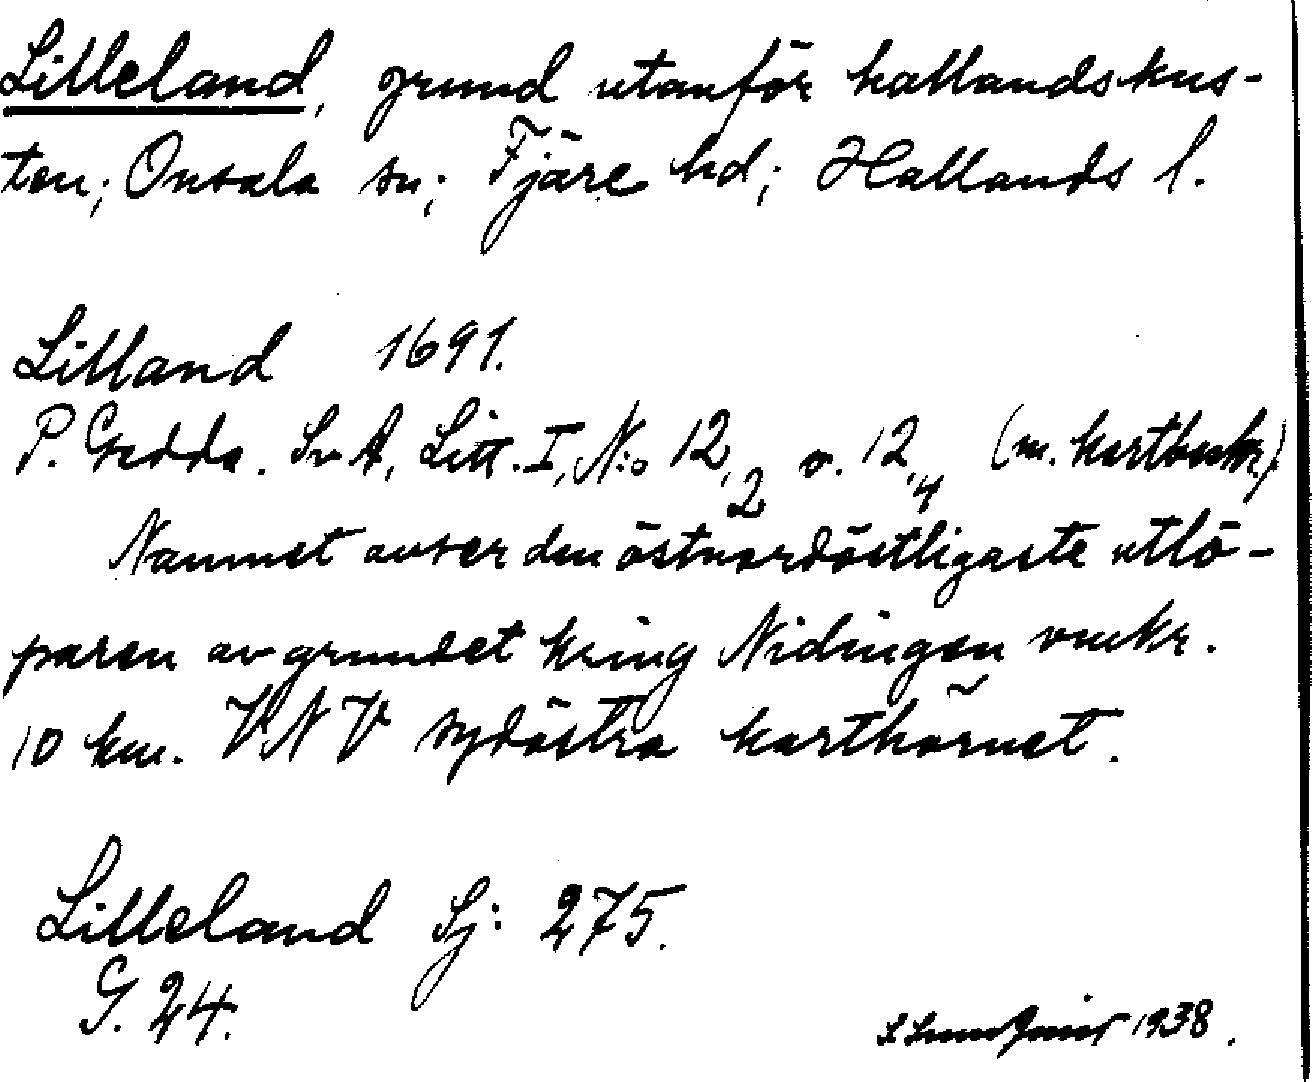 Lilleland, grund utanför hallandskus-
ten; Onsala sn; Fjäre hd; Hallands l.
Lilland 1691.
P. Gedda. Sv A, Litt. I, N:o 12,2 o. 12,4 (m. kartbeskr)
Namnet avser den östnordöstligaste utlö-
paren av grundet kring Nidingen omkr.
10 km. VNV sydöstra karthörnet.
Lilleland Sj: 275.
G. 24.
1938.